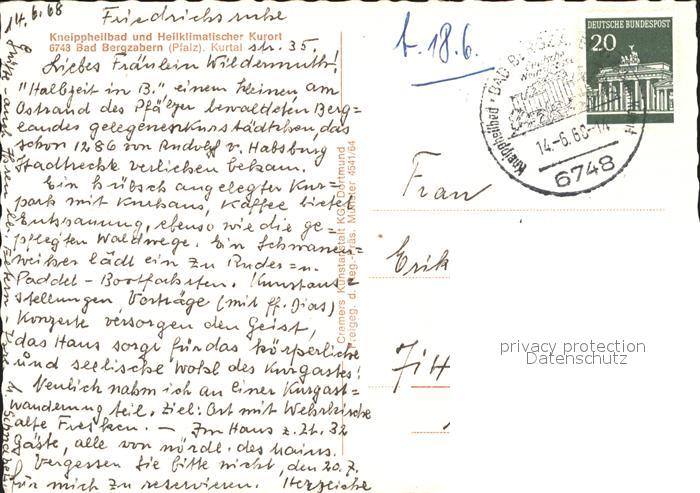 14.6.68
Friedrichsruhe
Kneippheilbad und Heilklimatischer Kurort
6748 Bad Bergzabern (Pfalz). Kurtal str. 35.
Liebes Fräulein Wildermuth!
"Halbzeit in B." einem kleinen am
Ostrand des Pfälzer bewaldeten Berg=
landes gelegenen Kurstädtchen, das
schon 1286 von Rudolf v. Habsburg
Stadtrechte verliehen bekam.
Ein hübsch angelegter Kur=
park mit Kurhaus, Kaffee bietet
Entspannung, ebenso wie die ge=
pflegten Waldwege. Ein Schwanen=
weiher lädt ein zu Ruder= u.
Paddel - Bootfahrten. Kunstaus=
stellungen Vorträge (mit ff. Dias)
Konzerte versorgen den Geist,
das Haus sorgt für das körperliche
und seelische Wohl des Kurgastes!
Neulich nahm ich an einer Kurgast=
wanderung teil. Ziel: Ort mit Wehrkirche
alte Fresken. — Im Haus z. Zt. 32
Gäste, alle von nördl. des Mains.
Vergessen Sie bitte nicht, den 20.7.
für mich zu reservieren. Herzliche
Grüße - auch
Cramers Kunstanstalt KG, Dortmund
Freigeg. d. Reg.-Präs. Münster 4541/64
b. 18.6.
DEUTSCHE BUNDESPOST
20
BAD BERGZABERN
Kneippheilbad
14.-6.68-14
6748
Frau
Erik
7 i H
privacy protection
Datenschutz